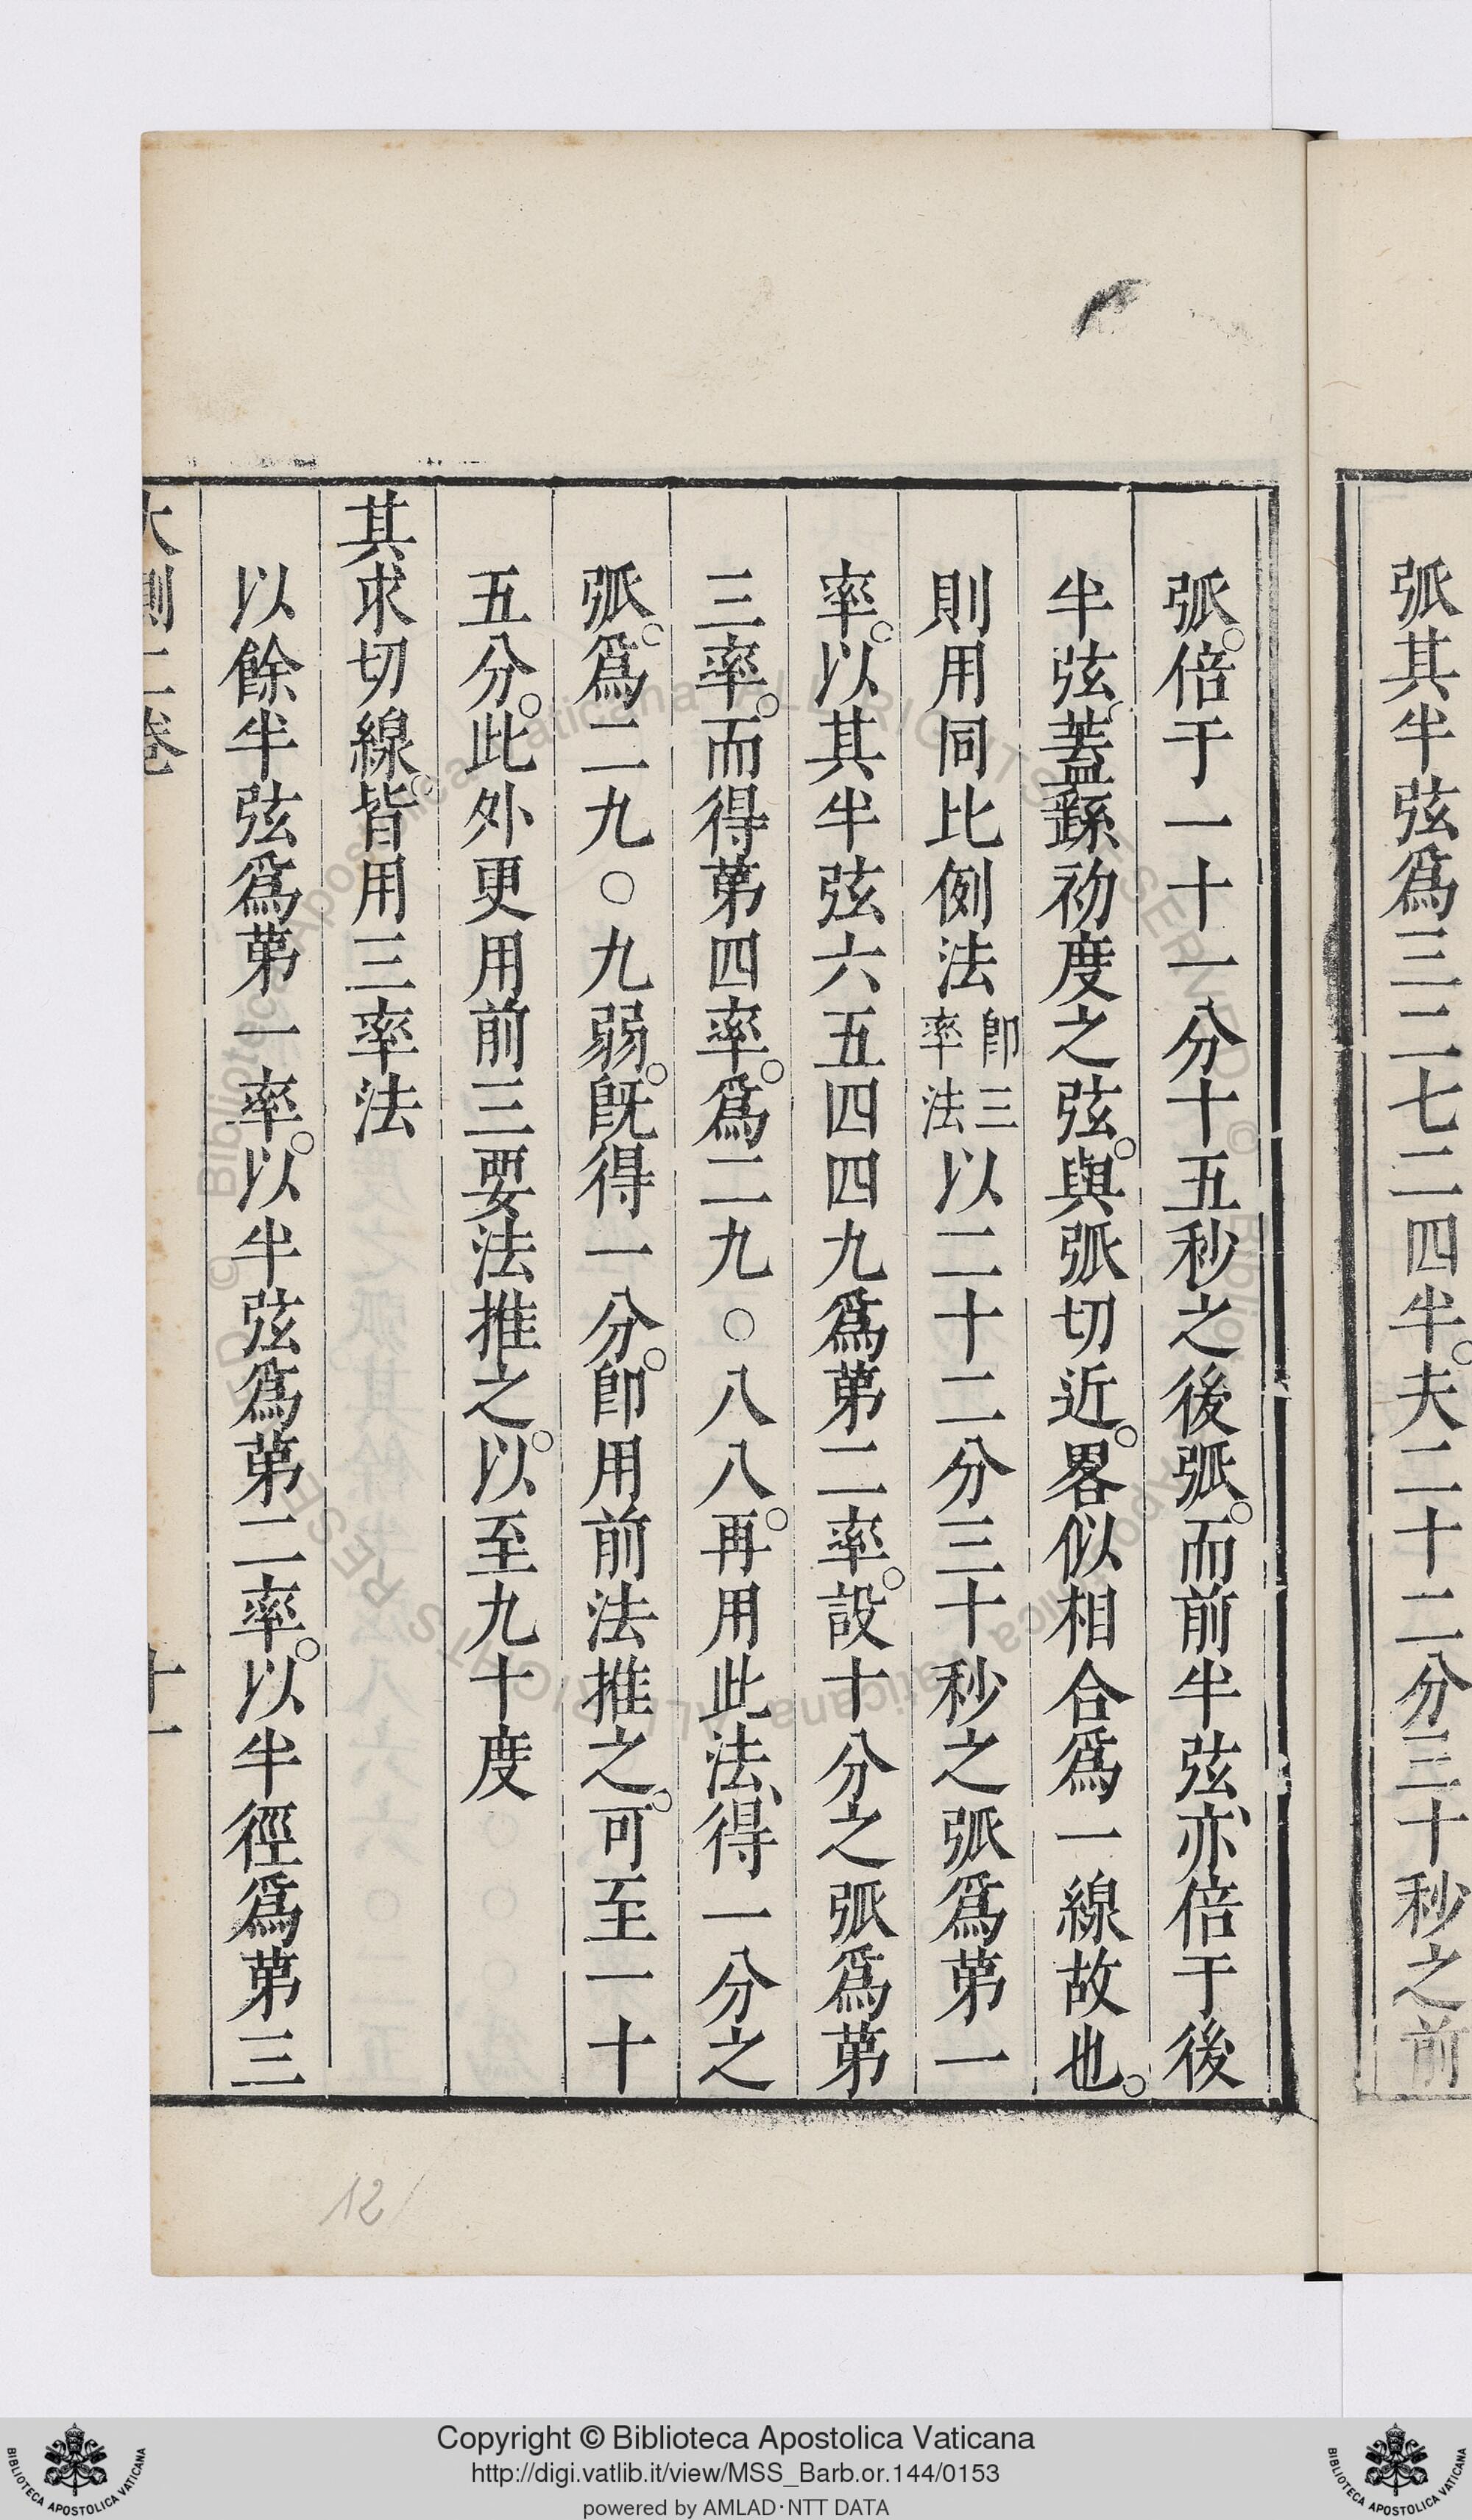 弧其半弦爲三二七二四半。夫二十二分三十秒之前
弧。倍于一十一分十五秒之後弧。而前半弦、亦倍于後
半弦、蓋繇初度之弦。與弧切近。畧似相合爲一線故也。
則用同比例法卽三率法以二十二分三十秒之弧爲第一
率。以其半弦六五四四九爲第二率。設十分之弧爲第
三率。而得第四率。爲二九〇八八。再用此法、得一分之
弧。爲二九〇九弱。旣得一分。卽用前法推之。可至一十
五分。此外更用前三要法推之。以至九十度
其求切線。皆用三率法
以餘半弦爲第一率。以半弦爲第二率。以半徑爲第三
大測二卷 十一
12
Copyright © Biblioteca Apostolica Vaticana
http://digi.vatlib.it/view/MSS_Barb.or.144/0153
powered by AMLAD·NTT DATA
BIBLIOTECA APOSTOLICA VATICANA
BIBLIOTECA APOSTOLICA VATICANA